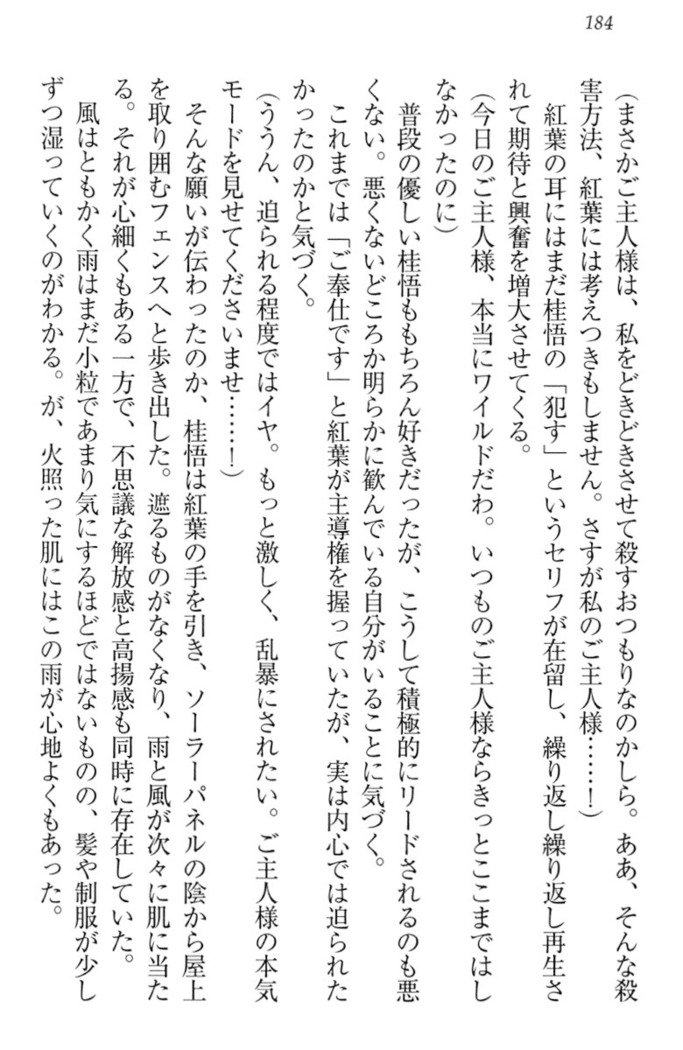 184
(まさかご主人様は、私をどきどきさせて殺すおつもりなのかしら。ああ、そんな殺
害方法、紅葉には考えつきもしません。さすが私のご主人様……！)
紅葉の耳にはまだ桂悟の「犯す」というセリフが在留し、繰り返し繰り返し再生さ
れて期待と興奮を増大させてくる。
(今日のご主人様、本当にワイルドだわ。いつものご主人様ならきっとここまではし
なかったのに)
普段の優しい桂悟ももちろん好きだったが、こうして積極的にリードされるのも悪
くない。悪くないどころか明らかに歓んでいる自分がいることに気づく。
これまでは「ご奉仕です」と紅葉が主導権を握っていたが、実は内心では迫られた
かったのかと気づく。
(ううん、迫られる程度ではイヤ。もっと激しく、乱暴にされたい。ご主人様の本気
モードを見せてくださいませ……！)
そんな願いが伝わったのか、桂悟は紅葉の手を引き、ソーラーパネルの陰から屋上
を取り囲むフェンスへと歩き出した。遮るものがなくなり、雨と風が次々に肌に当た
る。それが心細くもある一方で、不思議な解放感と高揚感も同時に存在していた。
風はともかく雨はまだ小粒であまり気にするほどではないものの、髪や制服が少し
ずつ湿っていくのがわかる。が、火照った肌にはこの雨が心地よくもあった。